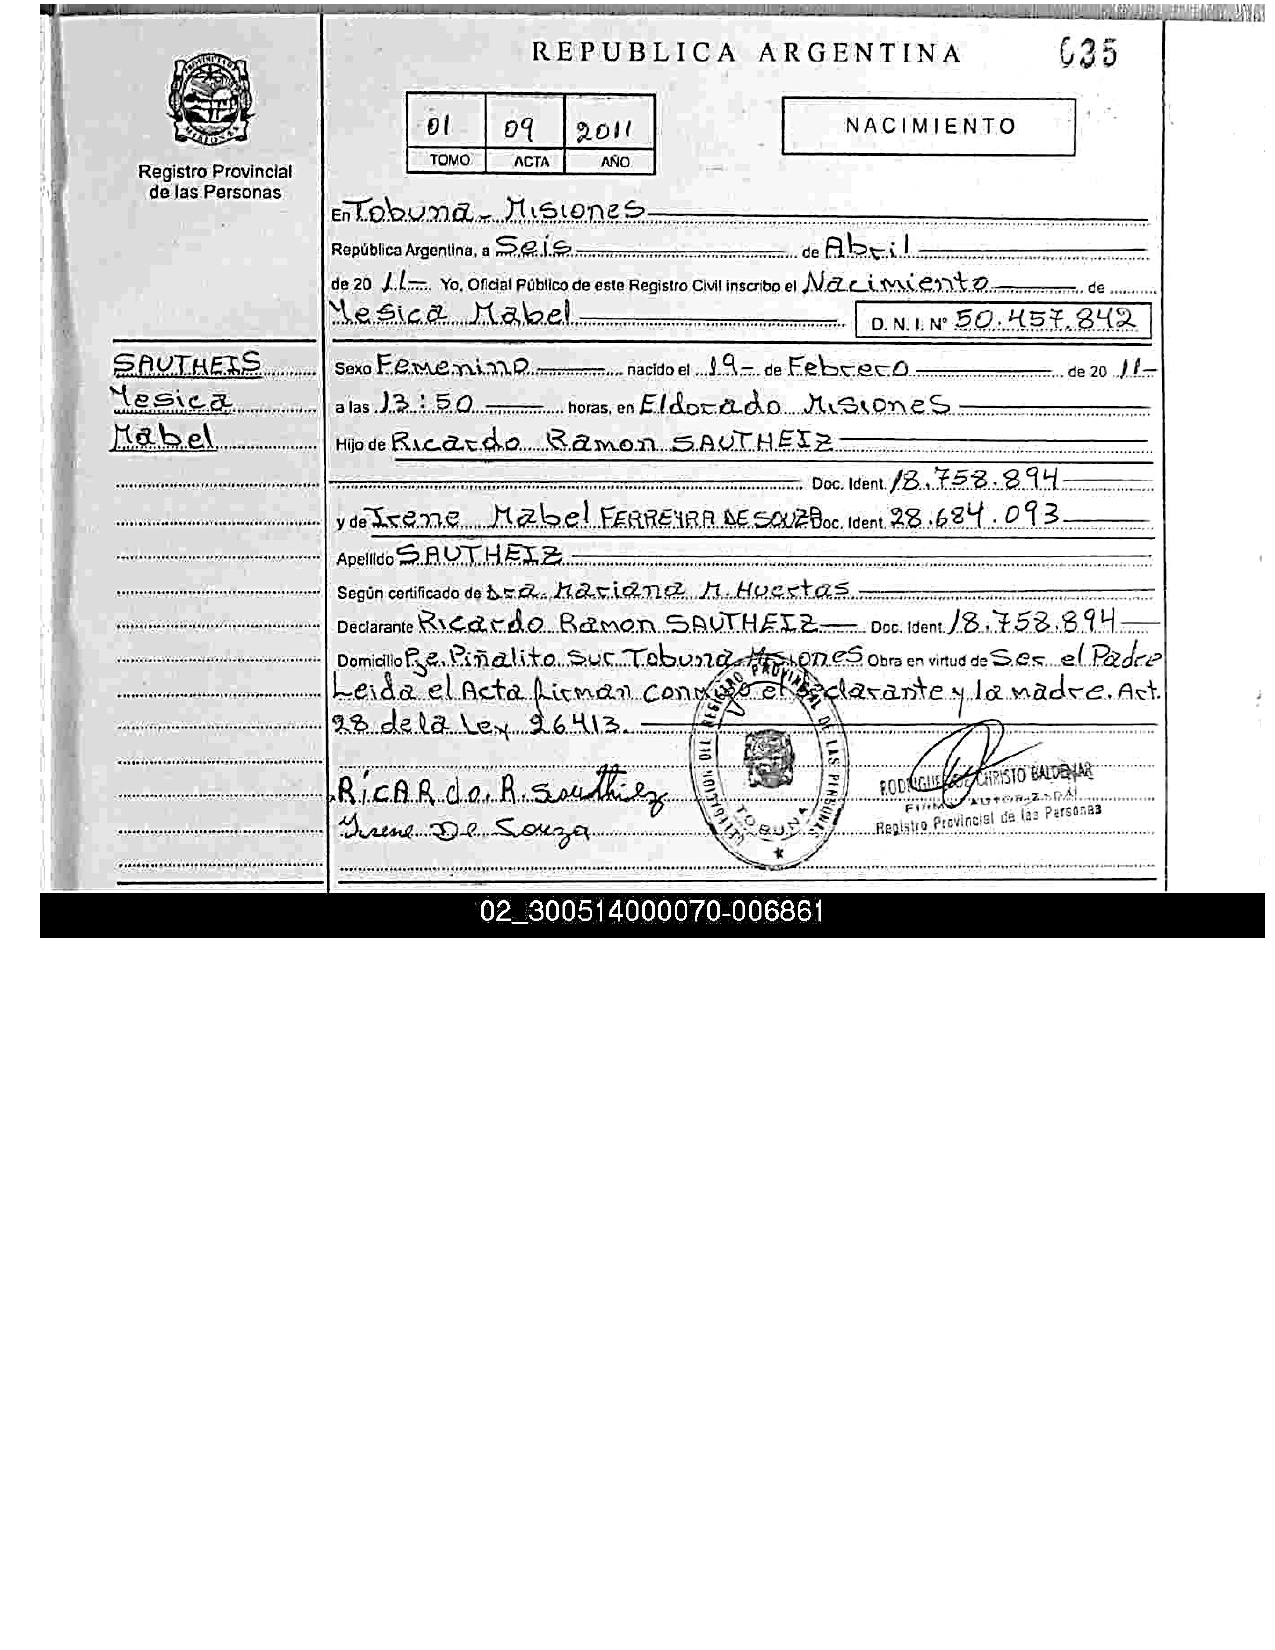 REPUBLICA ARGENTINA
035
01 09 2011
TOMO ACTA AÑO
NACIMIENTO
Registro Provincial
de las Personas
En Tobuna - Misiones
República Argentina, a Seis de Abril
de 20 11 Yo, Oficial Público de este Registro Civil inscribo el Nacimiento de
Yesica Mabel D. N. I. Nº 50.457.842
SAUTHEIS
Yesica
Mabel
Sexo Femenino nacido el 19 de Febrero de 20 11
a las 13:50 horas, en Eldorado Misiones
Hijo de Ricardo Ramon SAUTHEIZ
Doc. Ident. 18.758.894
y de Irene Mabel FERREYRA DE SOUZA Doc. Ident. 28.684.093
Apellido SAUTHEIZ
Según certificado de Dra. Mariana M. Huertas
Declarante Ricardo Ramon SAUTHEIZ Doc. Ident. 18.758.894
Domicilio Pje. Piñalito Sur Tobuna Misiones Obra en virtud de Ser el Padre
Leida el Acta firman conmigo el declarante y la madre. Art.
28 de la Ley 26413.
RicARdo. R. Sauthiez
Irene De Souza
REGISTRO PROVINCIAL DE LAS PERSONAS
TOBUNA
CHRISTO BALDEMAR
Registro Provincial de las Personas
02_300514000070-006861